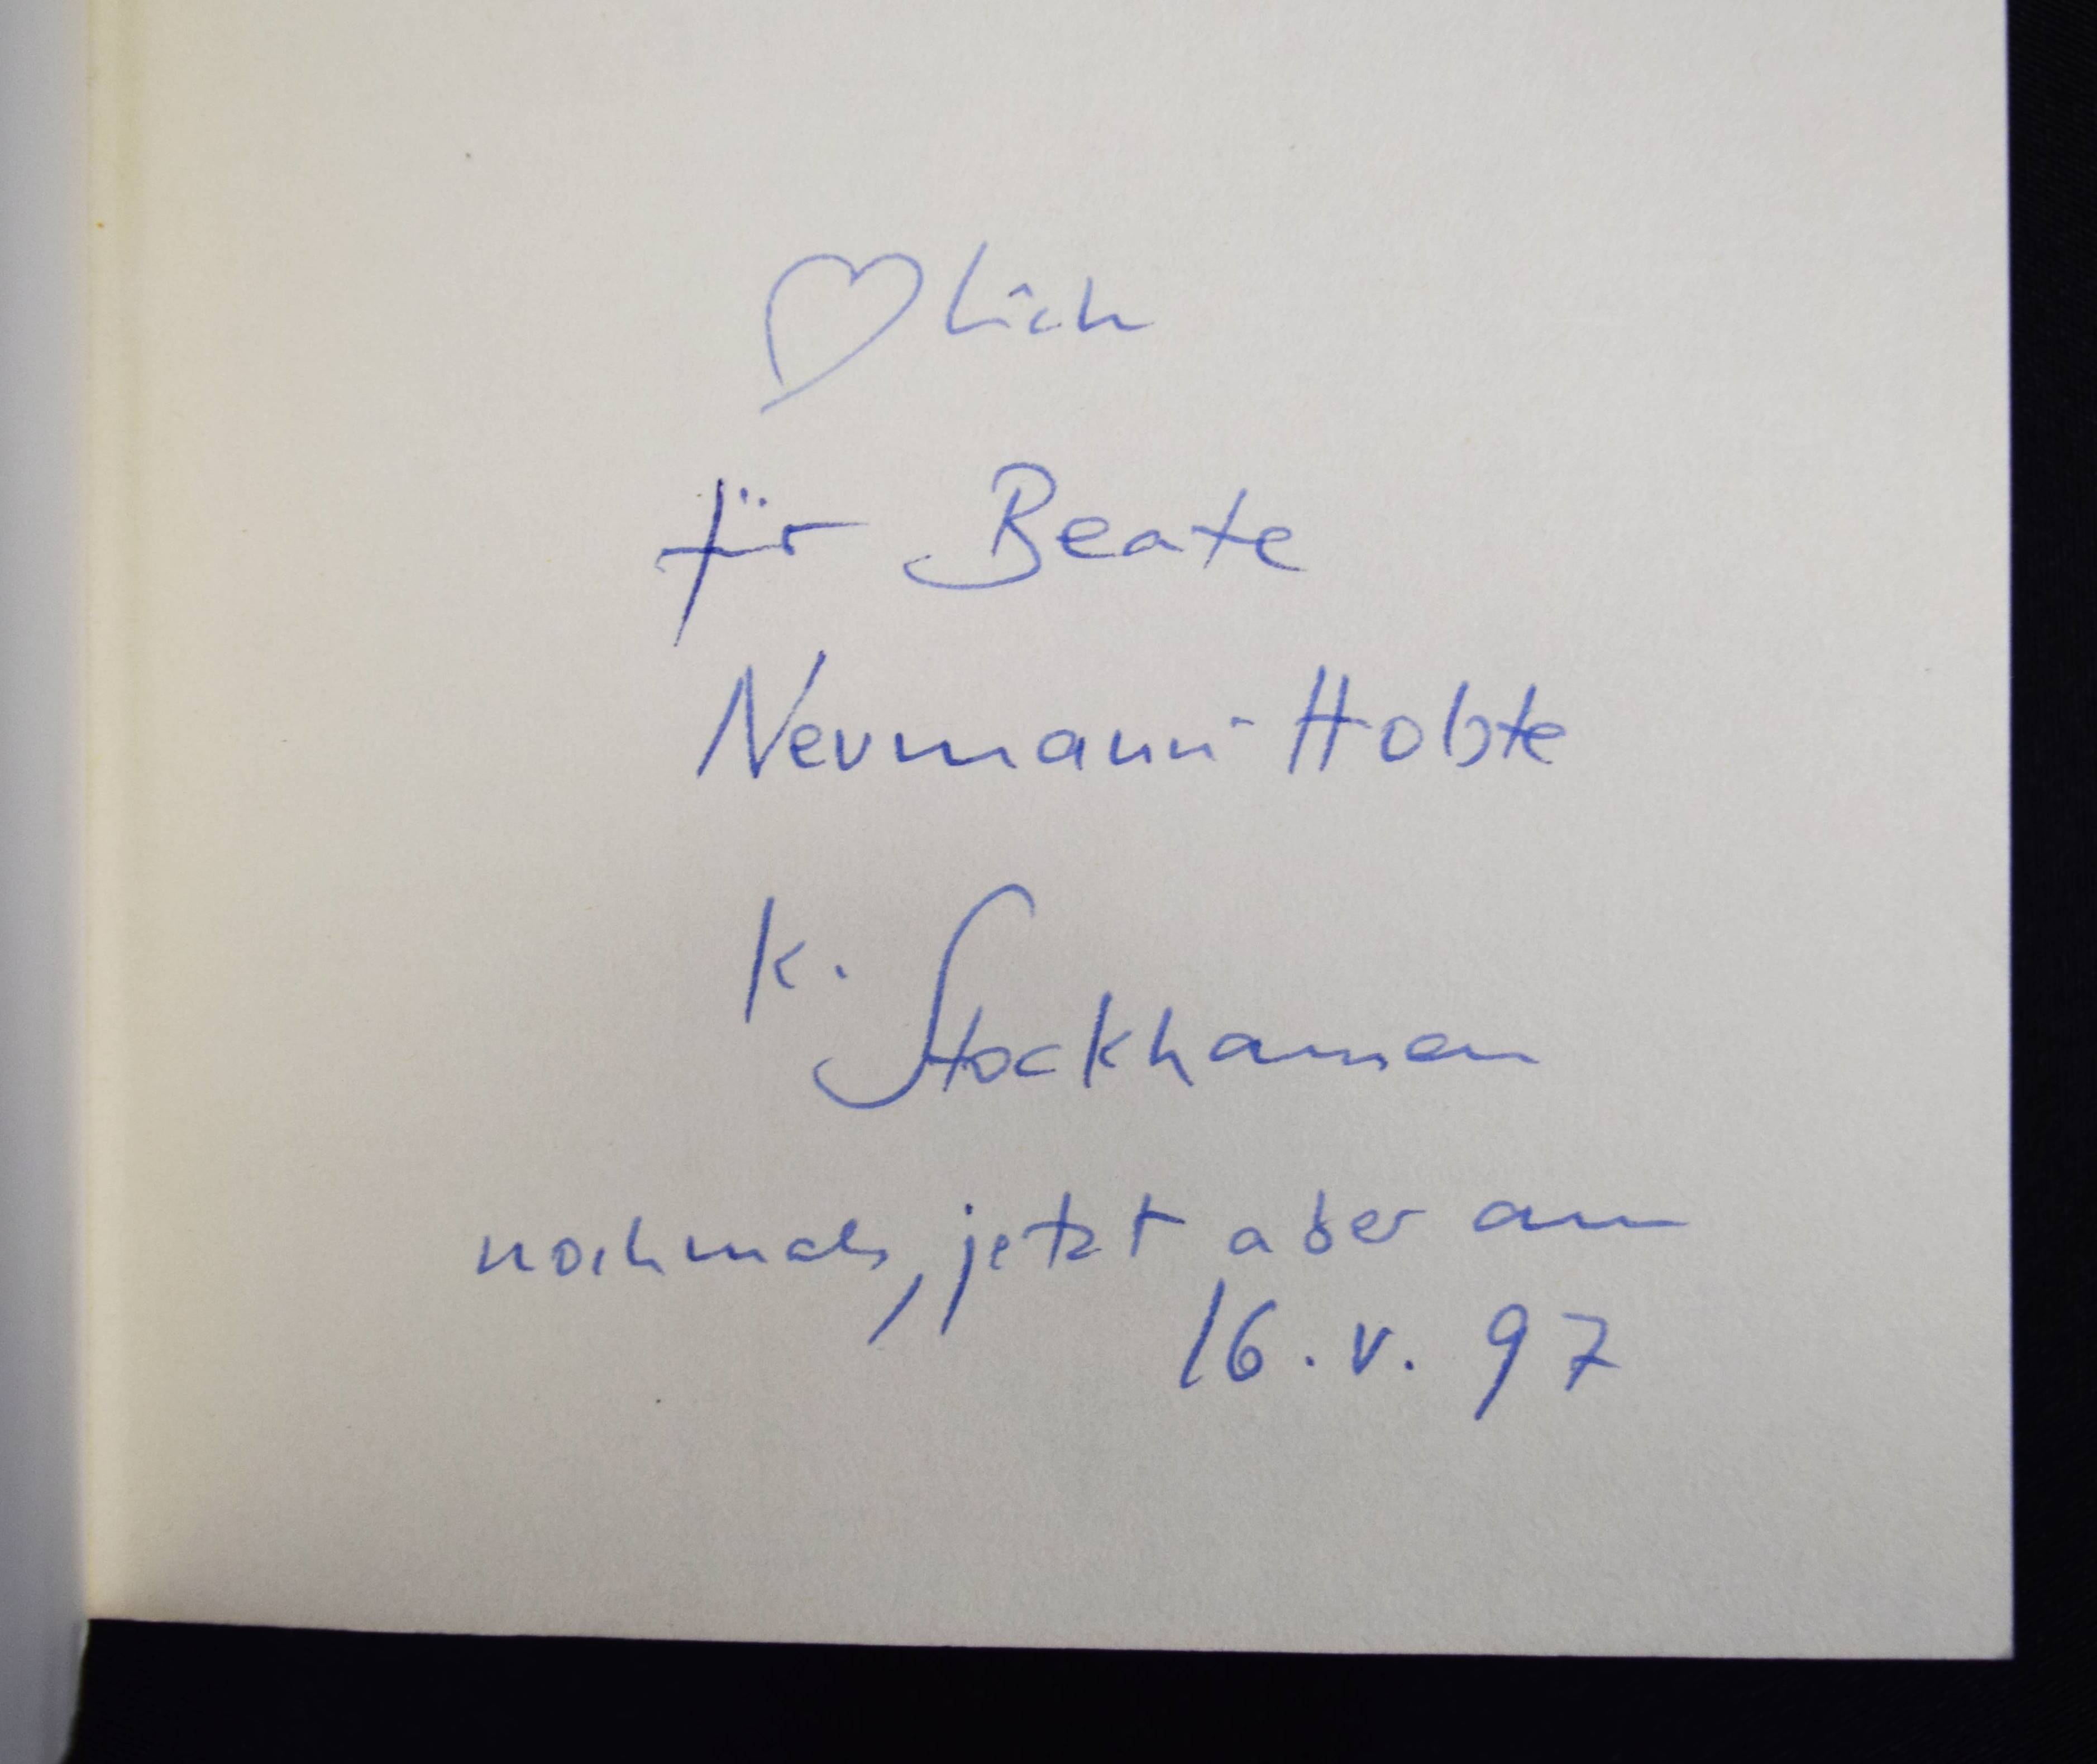 ♡lich
für Beate
Neumann-Holste
K.
Stockhausen
nochmals, jetzt aber am
16. V. 97